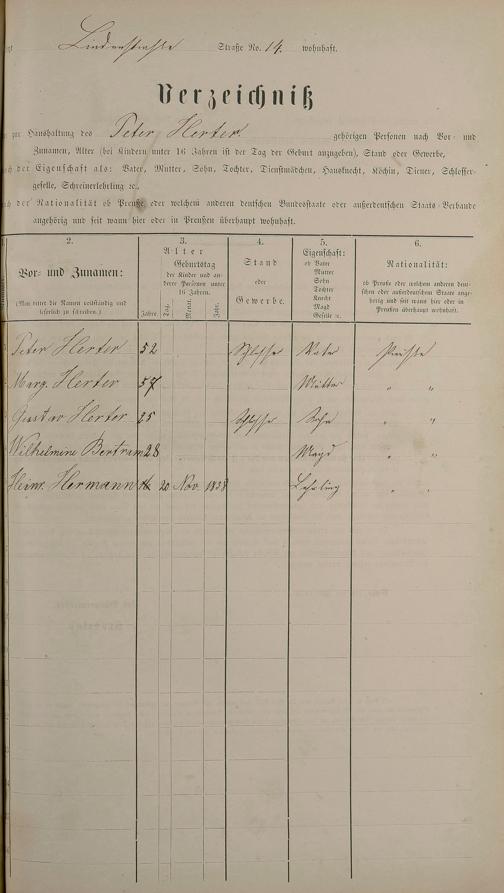 Lindenstraße Straße No. 14. wohnhaft.
Verzeichniß
zur Haushaltung des Peter Herter gehörigen Personen nach Vor- und
Zunamen, Alter (bei Kindern unter 16 Jahren ist der Tag der Geburt anzugeben), Stand oder Gewerbe,
der Eigenschaft als: Vater, Mutter, Sohn, Tochter, Dienstmädchen, Hausknecht, Köchin, Diener, Schlosser-
geselle, Schreinerlehrling ꝛc.,
der Nationalität ob Preuße oder welchem anderen deutschen Bundesstaate oder außerdeutschen Staats-Verbande
angehörig und seit wann hier oder in Preußen überhaupt wohnhaft.
2. 3. 4. 5. 6.
Vor- und Zunamen:
(Man bittet die Namen vollständig und
leserlich zu schreiben.)
Alter
Geburtstag
der Kinder und an-
derer Personen unter
16 Jahren.
Jahre. Tag. Monat. Jahr.
Stand
oder
Gewerbe.
Eigenschaft:
ob Vater
Mutter
Sohn
Tochter
Knecht
Magd
Geselle ꝛc.
Nationalität:
ob Preuße oder welchem anderen deut-
schen oder außerdeutschen Staate ange-
hörig und seit wann hier oder in
Preußen überhaupt wohnhaft.
Peter Herter 52 Schlosser Vater Preuße
Marg. Herter 57 Mutter " "
Gustav Herter 25 Schlosser Sohn " "
Wilhelmine Bertram 28 Magd " "
Heinr. Hermann 20 Nov. 1858 Lehrling " "